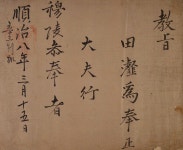 教旨
田瀣爲奉正
大夫行
穆陵參奉者
順治八年三月十五日